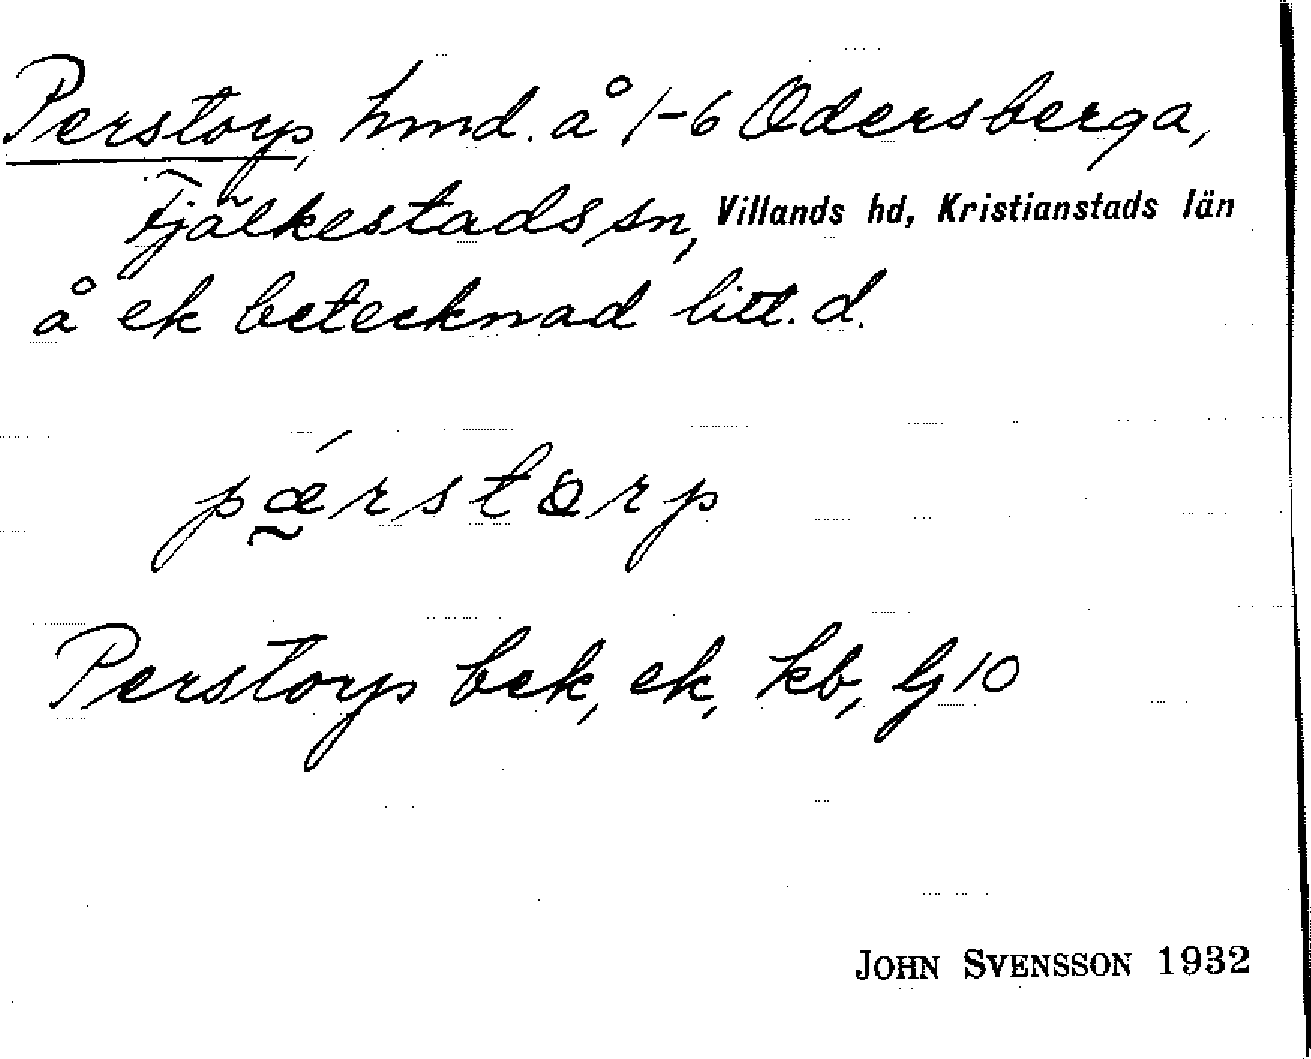 Perstorp, hmd. å 1-6 Odersberga,
Fjälkestads sn, Villands hd, Kristianstads län
å ek betecknad litt. d.
pǽ̰rstơrp
Perstorp bek, ek, kb, lj 10
JOHN SVENSSON 1932